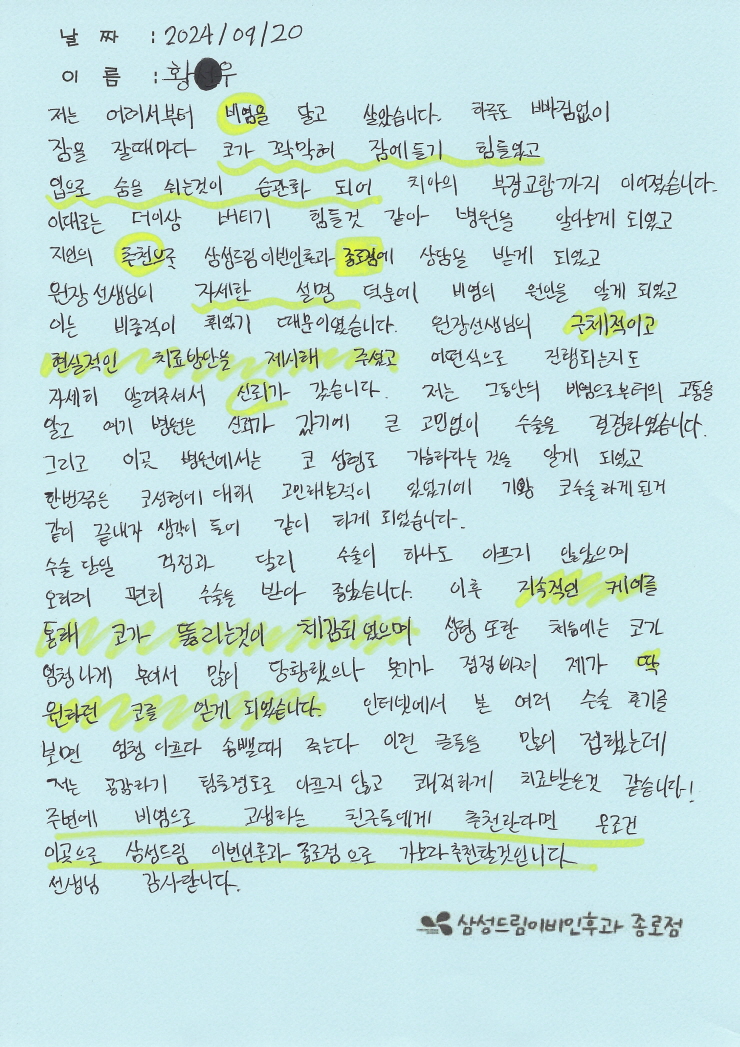 날 짜 : 2024/09/20
이 름 : 황 우
저는 어려서부터 비염을 달고 살았습니다. 하루도 빠짐없이
잠을 잘때마다 코가 꽉막혀 잠에들기 힘들었고
입으로 숨을 쉬는것이 습관화 되어 치아의 부정교합까지 이어졌습니다.
이대로는 더이상 버티기 힘들것 같아 병원을 알아보게 되었고
지인의 추천으로 삼성드림이비인후과 종로점에 상담을 받게 되었고
원장선생님의 자세한 설명 덕분에 비염의 원인을 알게 되었고
이는 비중격이 휘었기 때문이였습니다. 원장선생님의 구체적이고
현실적인 치료방안을 제시해 주셨고 어떤식으로 진행되는지도
자세히 알려주셔서 신뢰가 갔습니다. 저는 그동안의 비염으로부터의 고통을
알고 여기 병원은 신뢰가 갔기에 큰 고민없이 수술을 결정하였습니다.
그리고 이곳 병원에서는 코 성형도 가능하다는것을 알게 되었고
한번쯤은 코성형에 대해 고민해본적이 있었기에 기왕 코수술하게된거
같이 끝내자 생각이 들어 같이 하게 되었습니다.
수술 당일 걱정과 달리 수술이 하나도 아프지 않았으며
오히려 편히 수술을 받아 좋았습니다. 이후 지속적인 케어를
통해 코가 뚫리는것이 체감되었으며 성형 또한 처음에는 코가
엄청나게 부어서 많이 당황했으나 붓기가 점점빠져 제가 딱
원하던 코를 얻게 되었습니다. 인터넷에서 본 여러 수술 후기를
보면 엄청 아프다 솜뺄때 죽는다 이런 글들을 많이 접했는데
저는 공감하기 힘들정도로 아프지 않고 쾌적하게 치료받은것 같습니다!
주변에 비염으로 고생하는 친구들에게 추천한다면 무조건
이곳으로 삼성드림 이비인후과 종로점으로 가보라추천할것입니다.
선생님 감사합니다.
삼성드림이비인후과 종로점